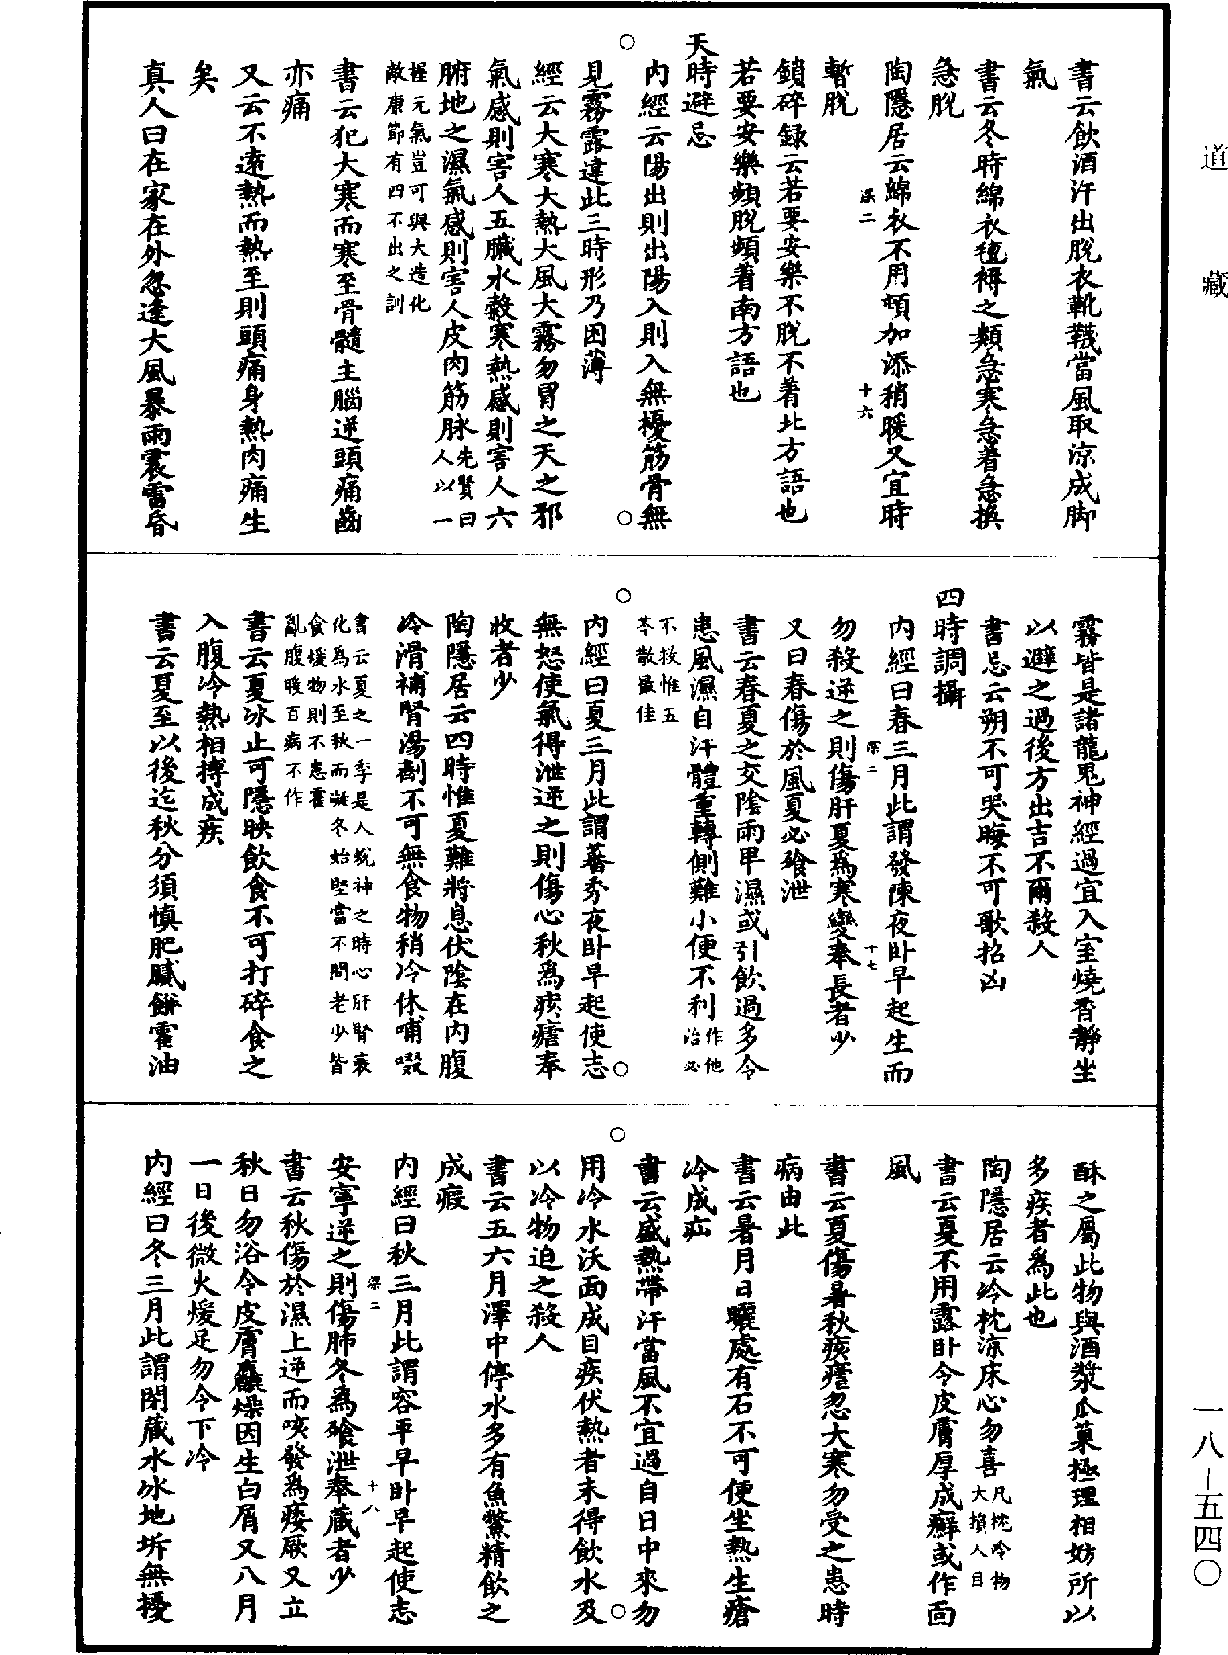 道藏
一八—五四〇
書云飲酒汗出脫衣靴韈當風取涼成脚
氣
書云冬時綿衣氊褥之類急寒急著急換
急脫
陶隱居云綿衣不用頓加添稍暖又宜時
梁二
十六
暫脫
鎖碎録云若要安樂不脫不著北方語也
若要安樂頻脫頻著南方語也
天時避忌
内經云陽出則出陽入則入無擾筋骨無
見霧露違此三時形乃困薄
經云大寒大熱大風大霧勿冒之天之邪
氣感則害人五臟水穀寒熱感則害人六
腑地之濕氣感則害人皮肉筋脉先賢曰人以一
握元氣豈可與大造化
敵康節有四不出之訓
書云犯大寒而寒至骨髓主腦逆頭痛齒
亦痛
又云不遠熱而熱至則頭痛身熱肉痛生
矣
真人曰在家在外忽逢大風暴雨震雷昏
霧皆是諸龍鬼神經過宜入室燒香靜坐
以避之過後方出吉不爾殺人
書忌云朔不可哭晦不可歌招凶
四時調攝
内經曰春三月此謂發陳夜卧早起生而
梁二
十七
勿殺逆之則傷肝夏爲寒變奉長者少
又曰春傷於風夏必飧泄
書云春夏之交陰雨卑濕或引飲過多令
患風濕自汗體重轉側難小便不利作他治必
不救惟五
苓散最佳
内經曰夏三月此謂蕃秀夜卧早起使志
無怒使氣得泄逆之則傷心秋爲痎瘧奉
收者少
陶隱居云四時惟夏難將息伏陰在内腹
冷滑補腎湯劑不可無食物稍冷休哺啜
書云夏之一季是人蛻神之時心肝腎衰
化爲水至秋而凝冬始堅當不問老少皆
食煖物則不患霍
亂腹暖百病不作
書云夏冰止可隱映飲食不可打碎食之
入腹冷熱相搏成疾
書云夏至以後迄秋分須慎肥膩餅臛油
酥之屬此物與酒漿瓜菓極理相妨所以
多疾者爲此也
陶隱居云冷枕涼床心勿喜凡枕冷物大損人目
書云夏不用露卧令皮膚厚成癬或作面
風
書云夏傷暑秋痎瘧忽大寒勿受之患時
病由此
書云暑月日曬處有石不可便坐熱生瘡
冷成疝
書云盛熱帶汗當風不宜過自日中來勿
用冷水沃面成目疾伏熱者未得飲水及
以冷物迫之殺人
書云五六月澤中停水多有魚鱉精飲之
成瘕
内經曰秋三月此謂容平早卧早起使志
梁二
十八
安寧逆之則傷肺冬爲飧泄奉藏者少
書云秋傷於濕上逆而咳發爲痿厥又立
秋日勿浴令皮膚麤燥因生白屑又八月
一日後微火煖足勿令下冷
内經曰冬三月此謂閉藏水冰地坼無擾